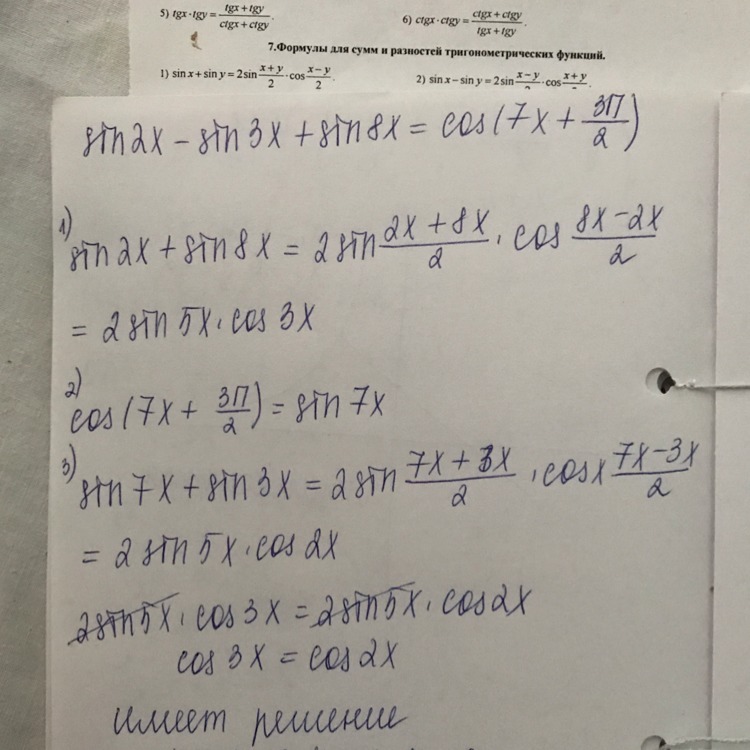 5) tgx·tgy = (tgx + tgy)/(ctgx + ctgy).
6) ctgx·ctgy = (ctgx + ctgy)/(tgx + tgy).
7.Формулы для сумм и разностей тригонометрических функций.
1) sin x + sin y = 2sin (x+y)/2 · cos (x−y)/2.
2) sin x − sin y = 2sin (x−y)/2 · cos (x+y)/
sin2x − sin3x + sin8x = cos(7x + 3π/2)
1)
sin2x + sin8x = 2sin (2x + 8x)/2 · cos (8x − 2x)/2
= 2sin5x · cos3x
2)
cos(7x + 3π/2) = sin7x
3)
sin7x + sin3x = 2sin (7x + 3x)/2 · cosx (7x − 3x)/2
= 2sin5x · cos2x
2sin5x · cos3x = 2sin5x · cos2x
cos3x = cos2x
имеет решение